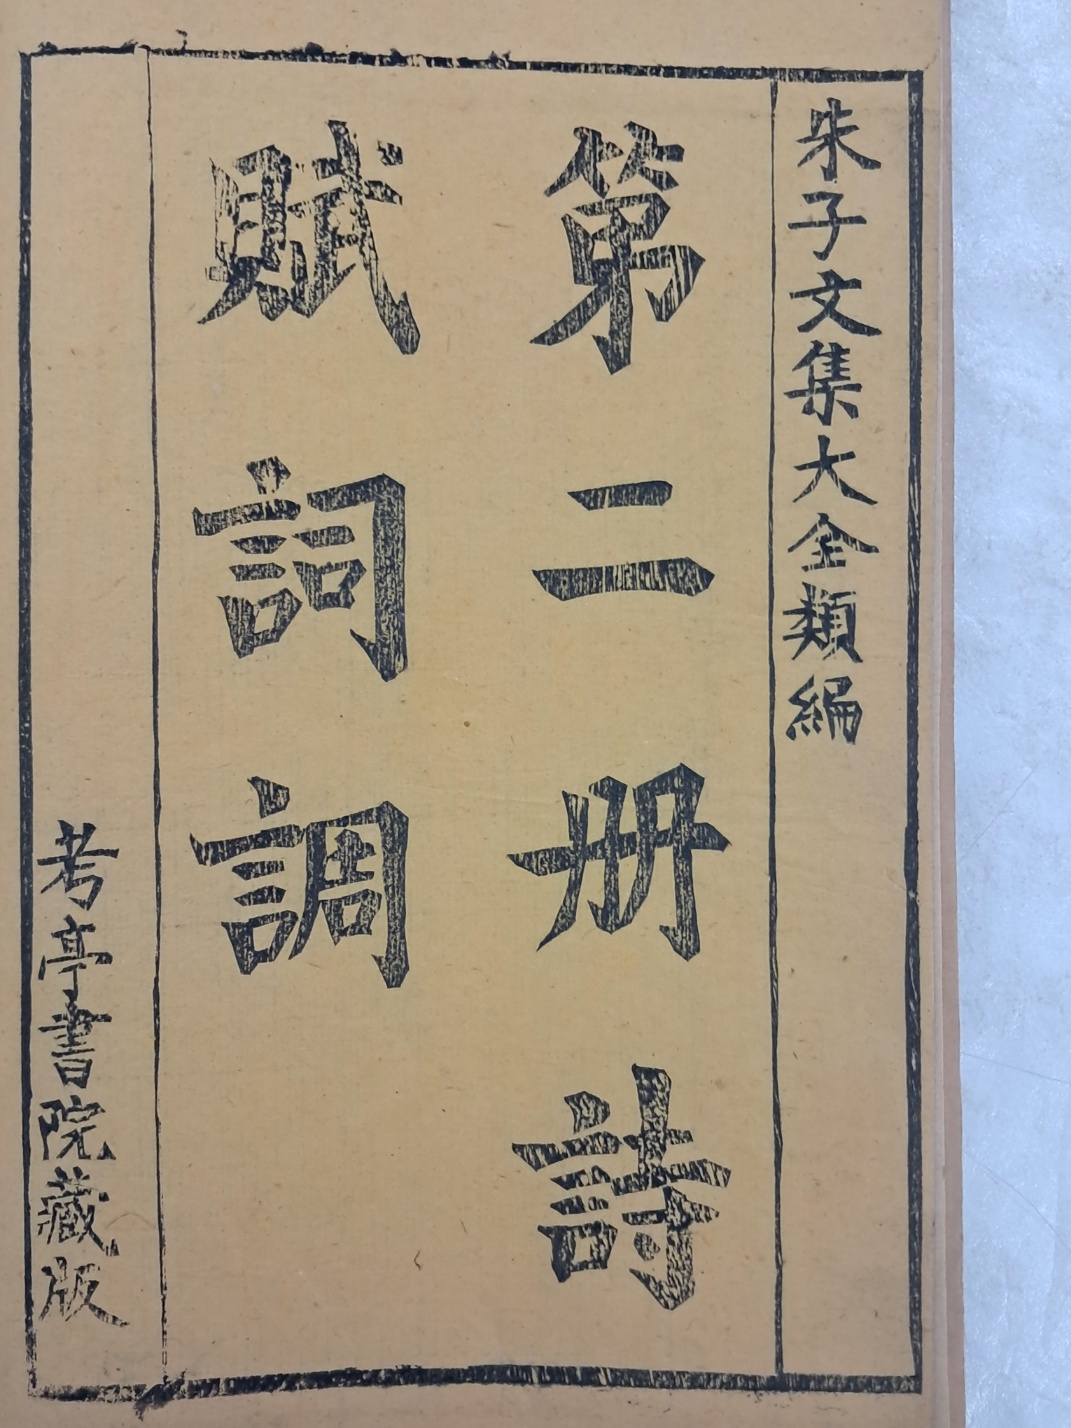 朱子文集大全類編
第二册詩
賦詞調
考亭書院藏版